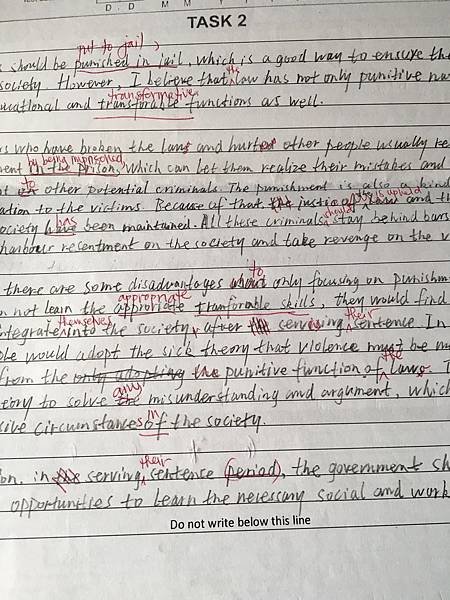 D D M
TASK 2
put to jail,
s should be punished in jail, which is a good way to ensure the
the
society. However, I believe that law has not only punitive na
transformative
ucational and transforable functions as well.
rs who have broken the laws and hurt other people usually re
by being imprisoned,
ment in the prison, which can let them realize their mistakes and
to other potential criminals. The punishment is also a kind
is upheld
ation to the victims. Because of that justice of law and th
has should
society have been maintained. All these criminals stay behind bars
harbour resentment on the society and take revenge on the v
to
there are some disadvantages about only focusing on punishm
appropriate
n not learn the approciate tranforable skills, they would find
themselves their
ntegrate into the society after serving sentence. In
ple would adopt the sick theory that violence must be
the
from the only adopting the punitive function of laws.
any
eory to solve misunderstanding and argument, which
in
sive circumstances of the society.
their
on, in serving sentence (period), the government sh
opportunities to learn the necessary social and work
Do not write below this line